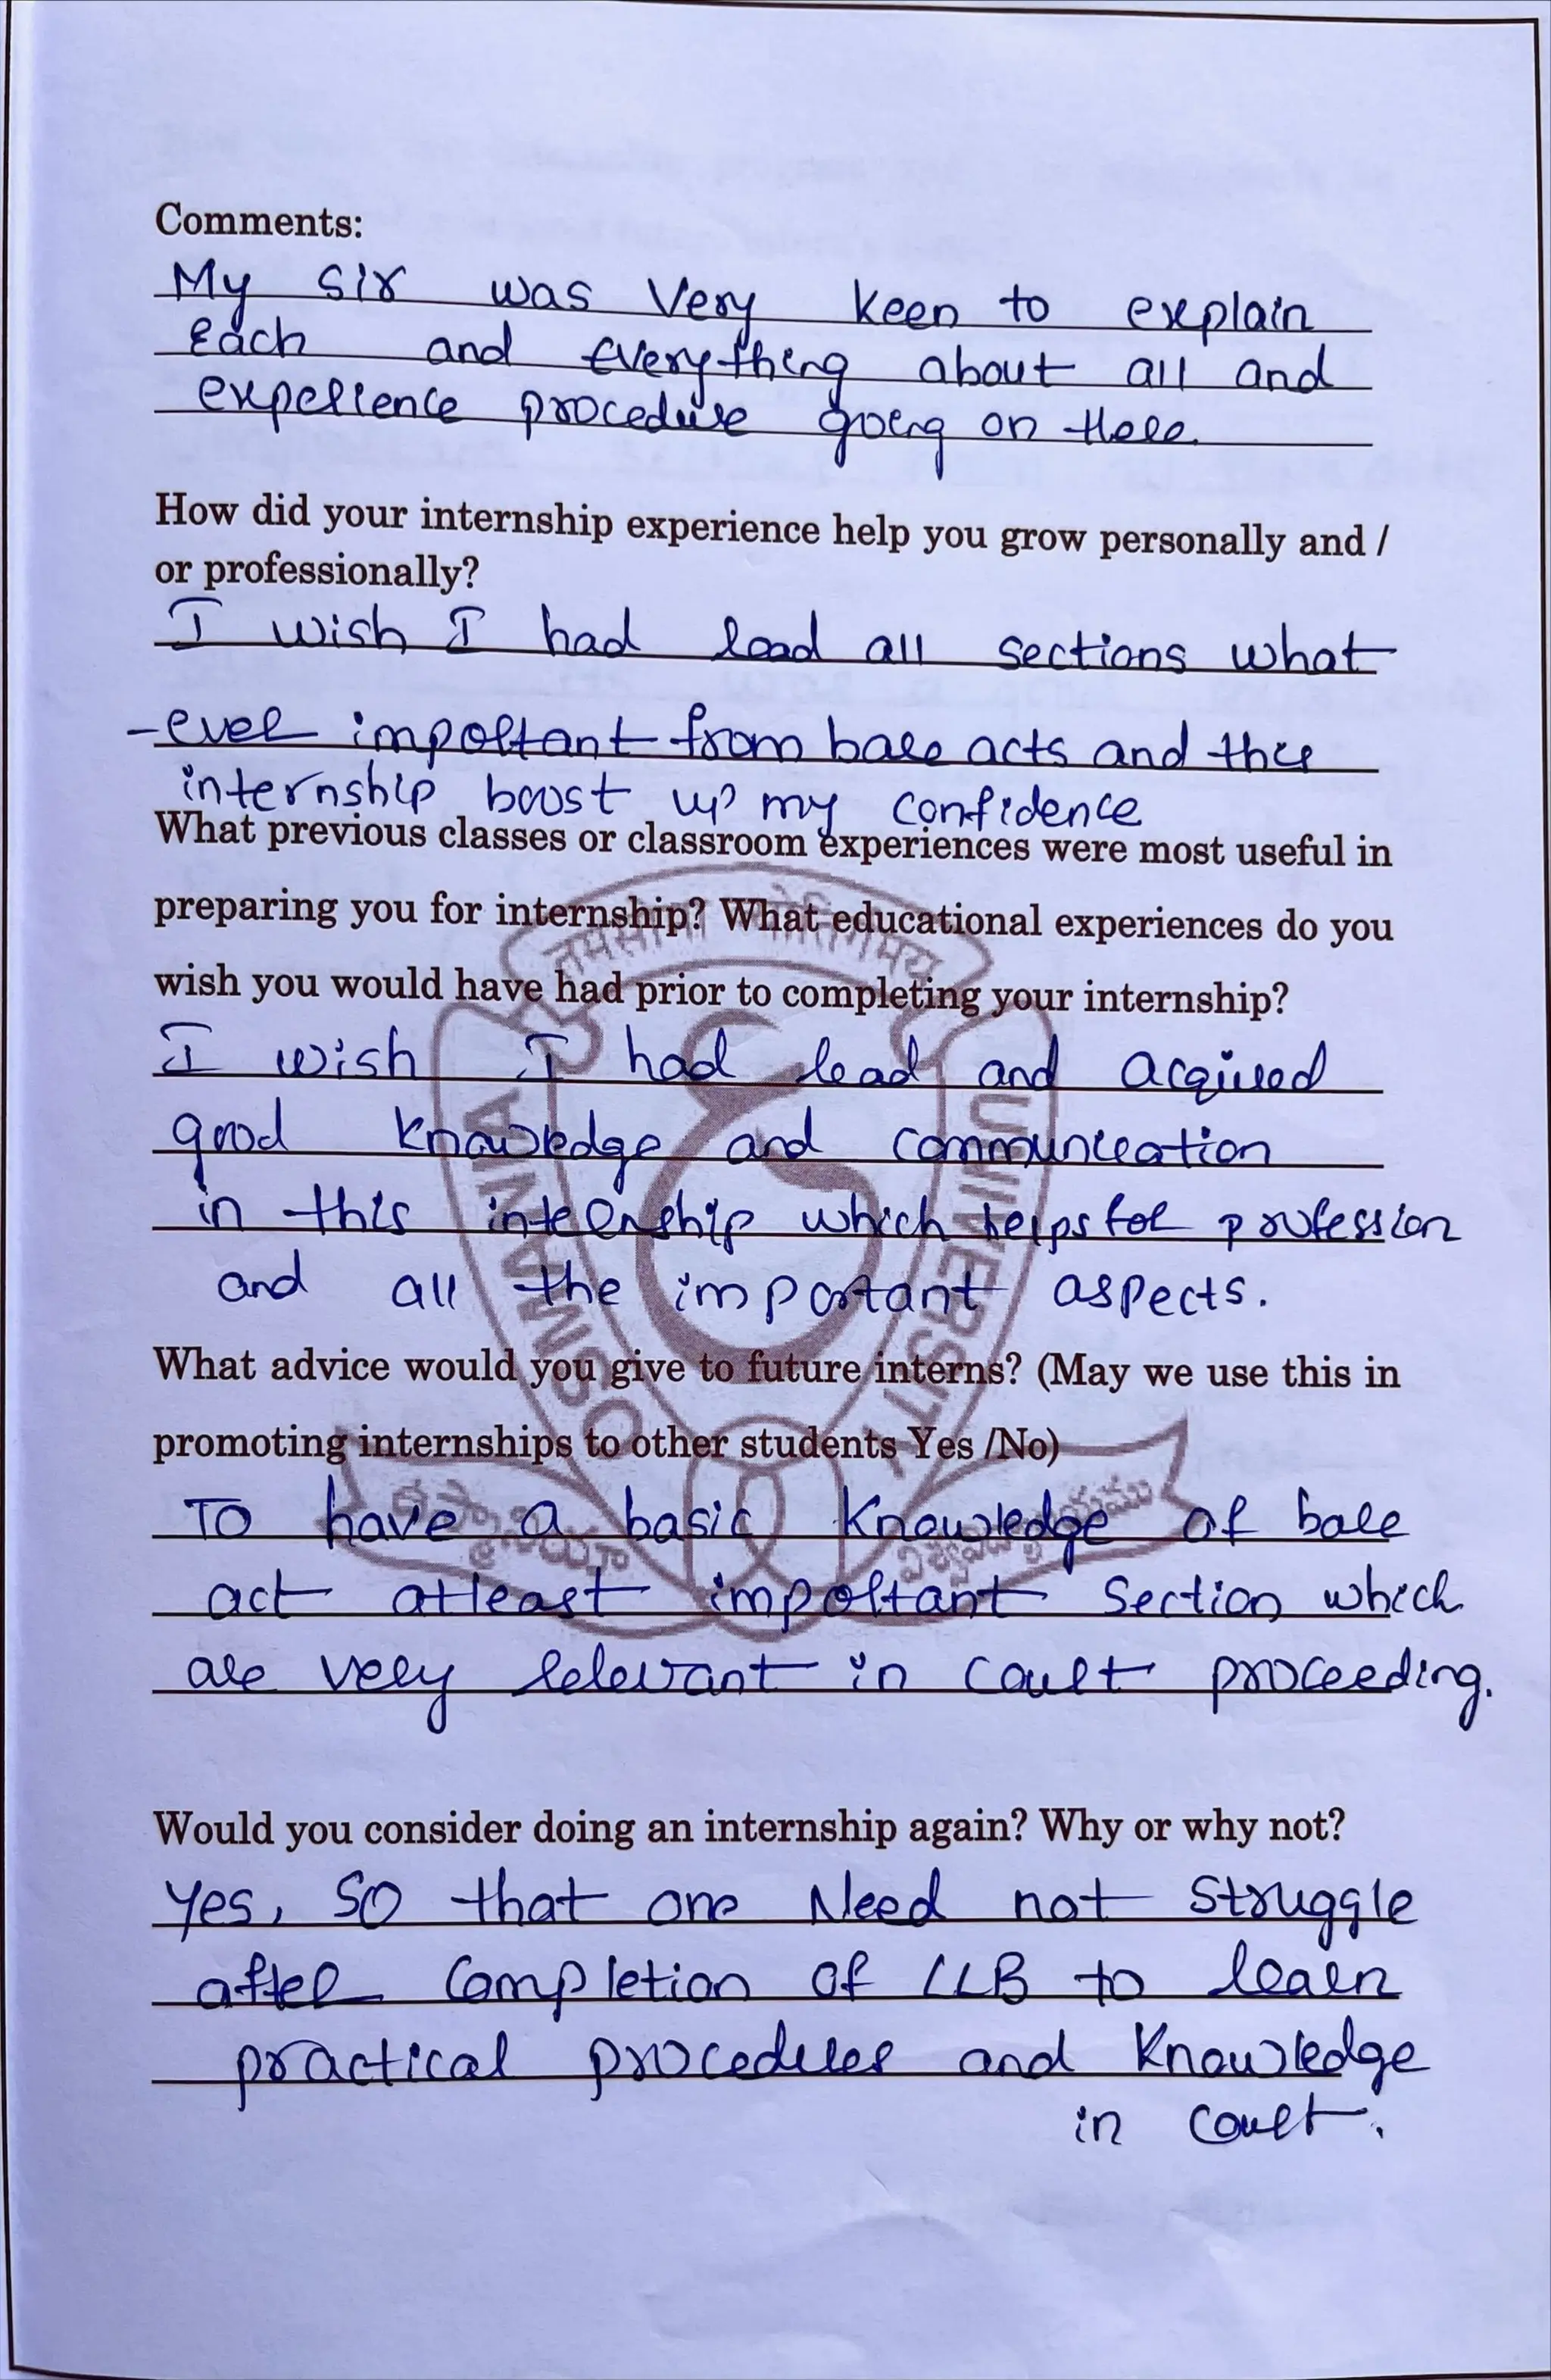 Comments:
My sir was very keen to explain
each and everything about all and
experience procedure going on there.
How did your internship experience help you grow personally and /
or professionally?
I wish I had read all sections what
-ever important from bare acts and this
internship boost up my confidence
What previous classes or classroom experiences were most useful in
preparing you for internship? What educational experiences do you
wish you would have had prior to completing your internship?
I wish I had read and acquired
good knowledge and communication
in this internship which helps for profession
and all the important aspects.
What advice would you give to future interns? (May we use this in
promoting internships to other students Yes /No)
To have a basic knowledge of bare
act atleast important section which
are very relevant in court proceeding.
Would you consider doing an internship again? Why or why not?
Yes, so that one Need not struggle
after completion of LLB to learn
practical procedures and knowledge
in court.
तमसोमा ज्योतिर्गमय
OSMANIA UNIVERSITY